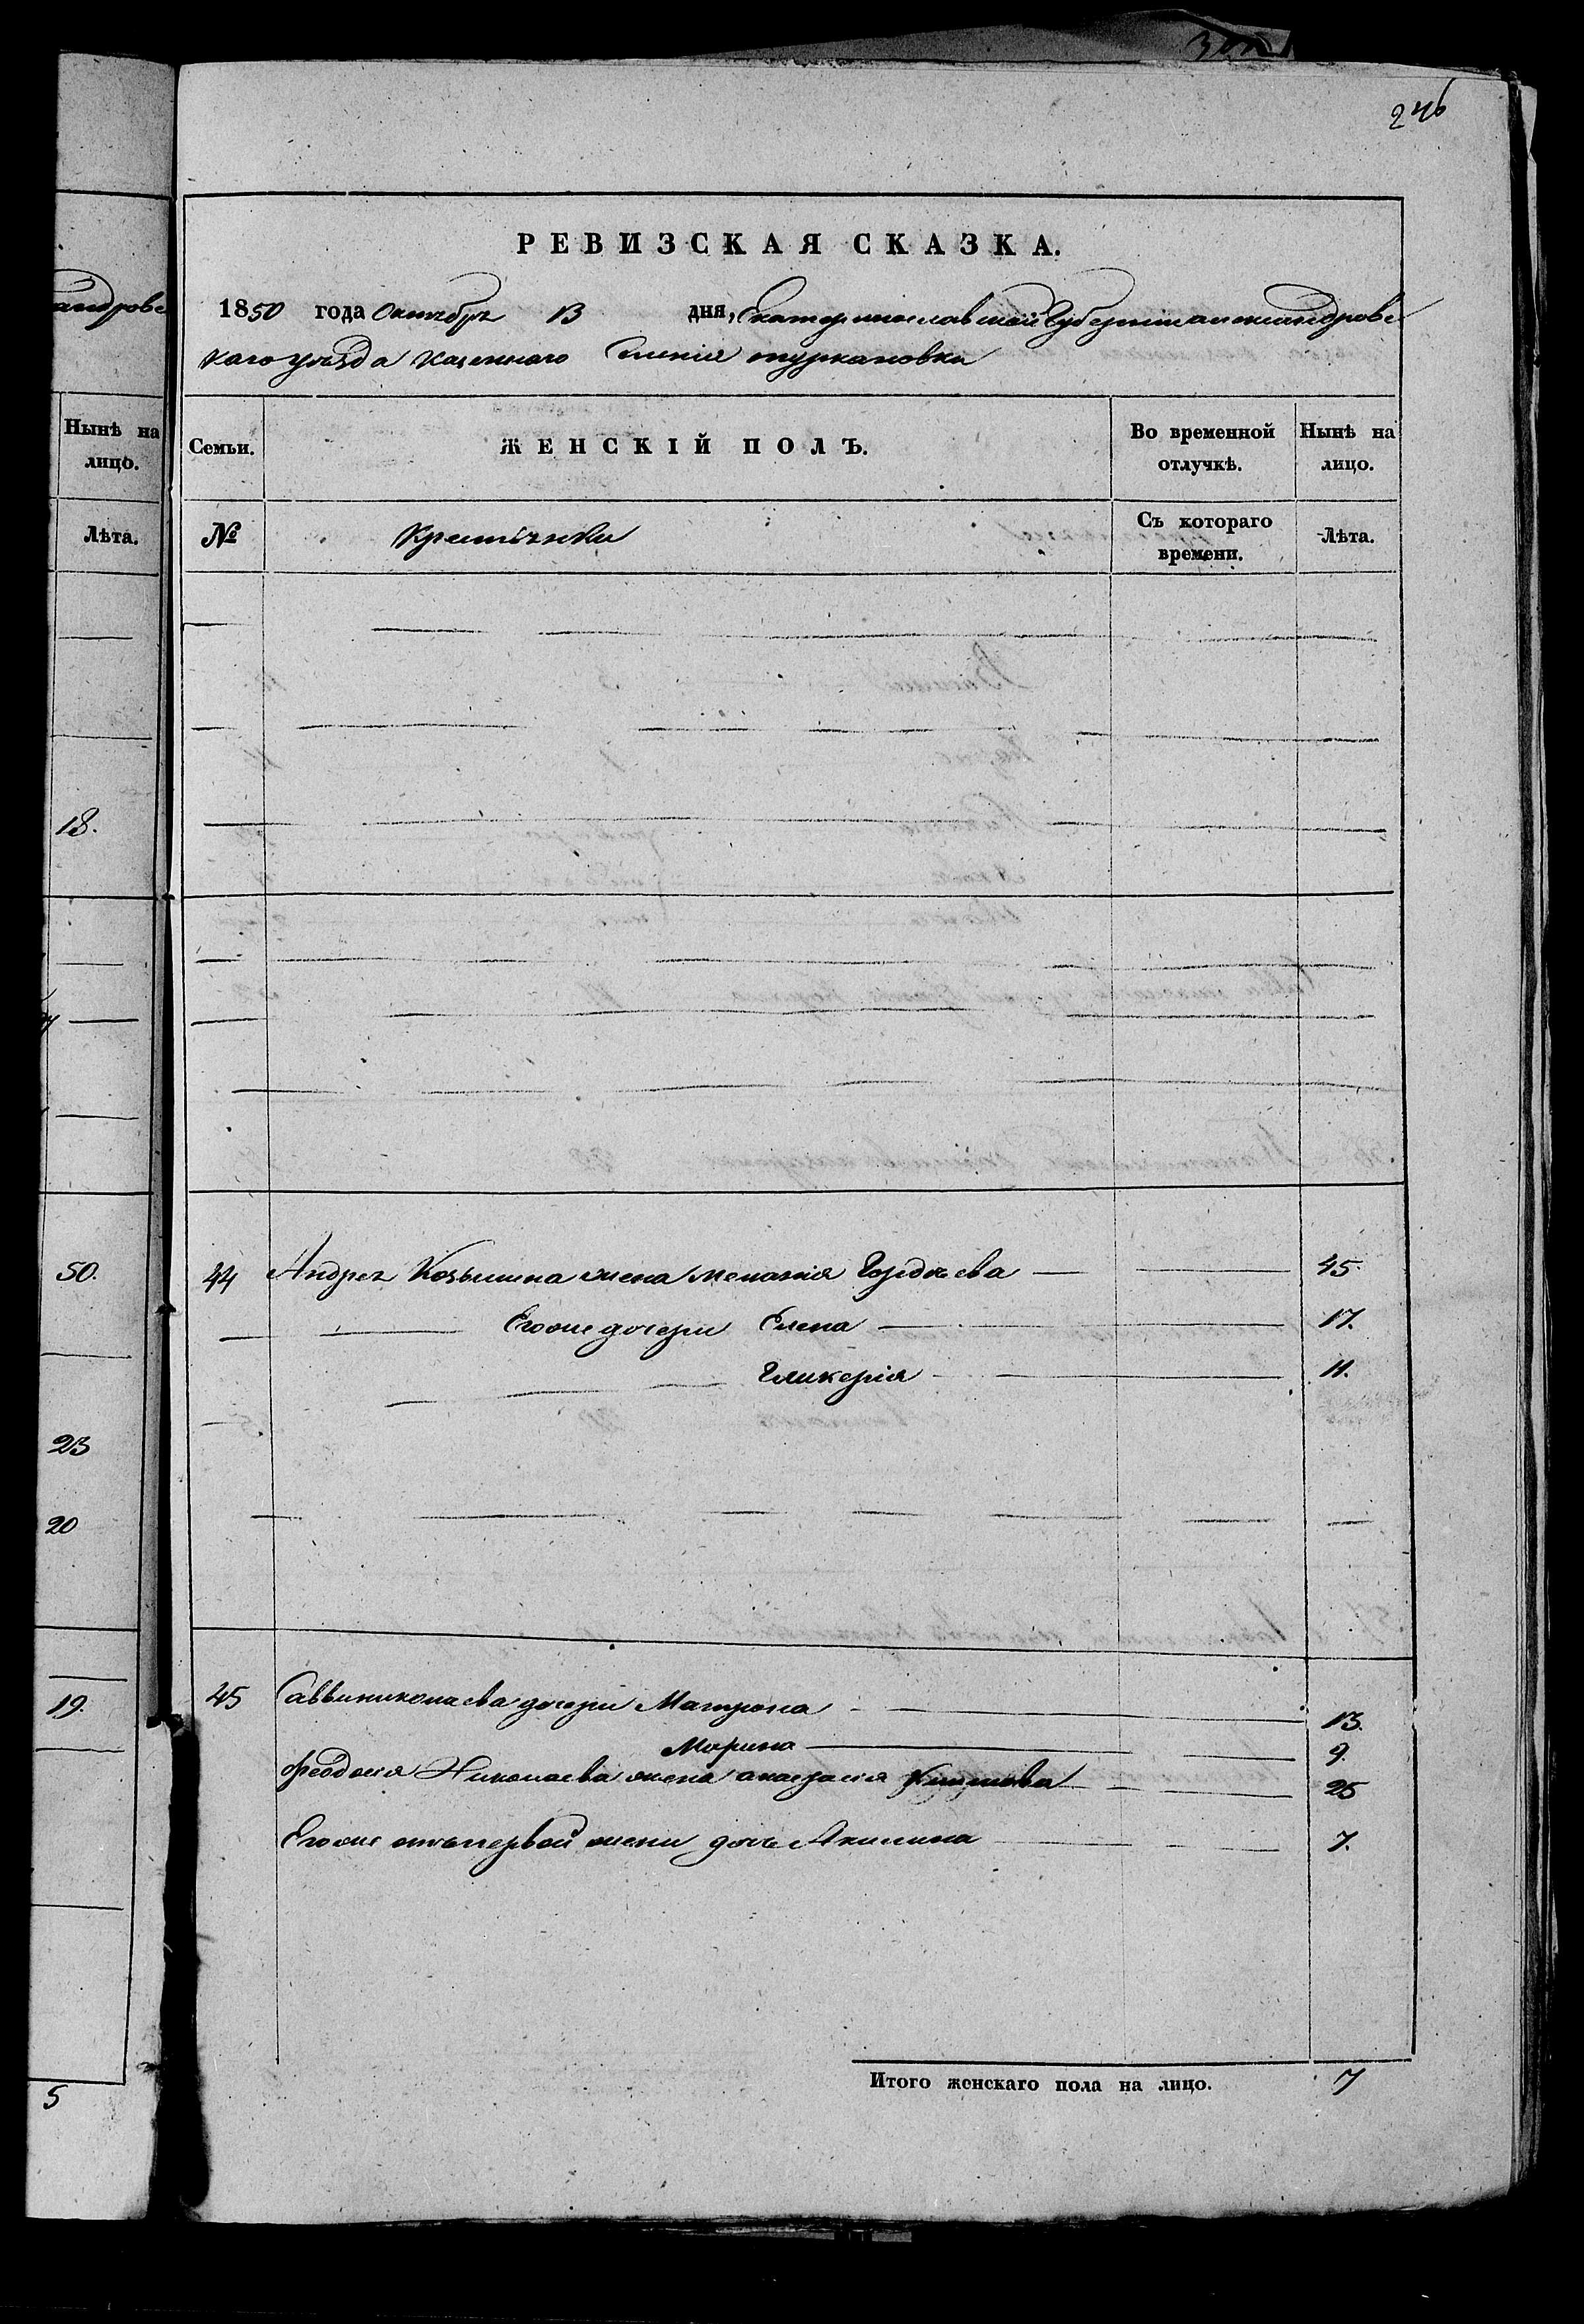 246
РЕВИЗСКАЯ СКАЗКА.
1850 года Октября 13 дня, Екатеринославской Губернии александровс
каго уезда казеннаго Селения туркановки
Семьи. ЖЕНСКІЙ ПОЛЪ. Во временной отлучкѣ. Нынѣ на лицо.
№ Крестьянки Съ котораго времени. Лѣта.
44 Андрея Козьмина жена мелания Гордѣева 45
Егоже дочери Елена 17.
Гликерія 11.
45 Саввы николаева дочери Матрона 13.
Марина 9.
Феодосия Николаева жена анастасия 25
Егоже отъ первой жены дочь Акилина 7.
Итого женскаго пола на лицо. 7
андровс
Нынѣ на
лицо.
Лѣта.
18.
50.
23
20
19.
5